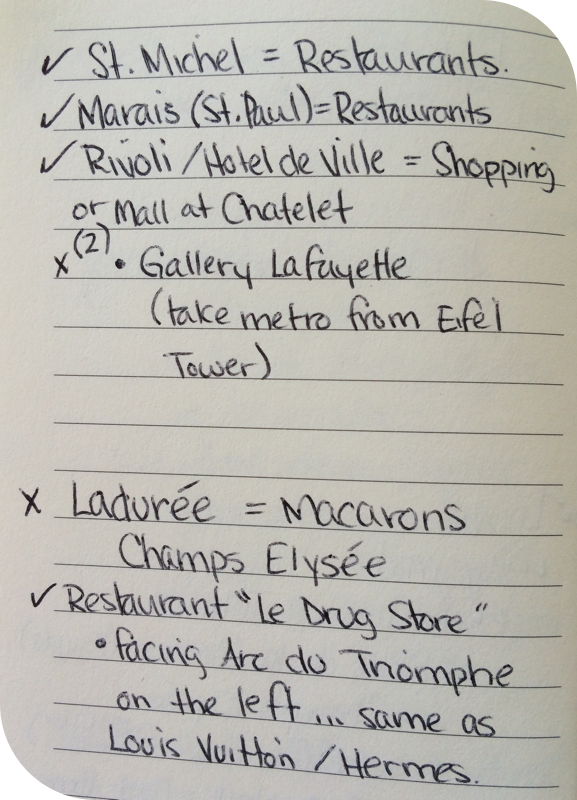 ✓ St. Michel = Restaurants.
✓ Marais (St. Paul) = Restaurants
✓ Rivoli / Hotel de Ville = Shopping
or Mall at Chatelet
x (2) • Gallery Lafayette
(take metro from Eifel
Tower)
x Ladurée = Macarons
Champs Elysée
✓ Restaurant "Le Drug Store"
• facing Arc du Triomphe
on the left ... same as
Louis Vuitton / Hermes.